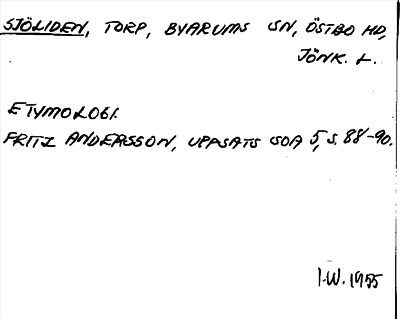 SJÖLIDEN, TORP, BYARUMS SN, ÖSTBO HD,
JÖNK. L.
ETYMOLOGI.
FRITZ ANDERSSON, UPPSATS SOA 5, S. 88-90.
I.W. 1955